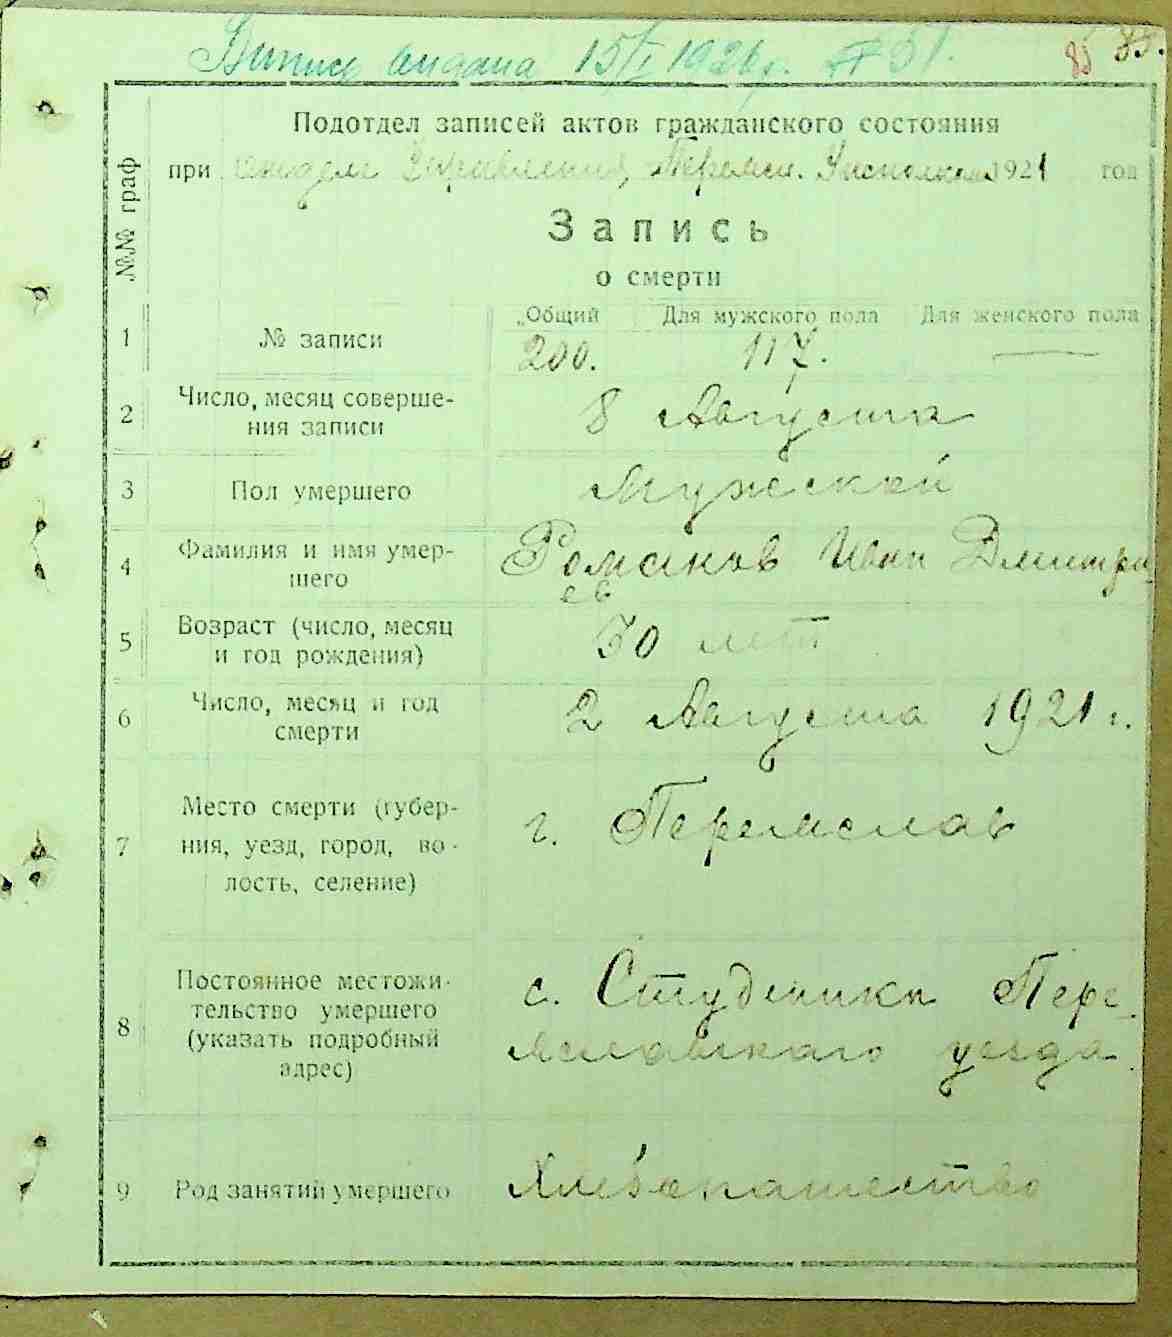 Выпись выдана 15/I 1926 г. № 51.
85 85.
Подотдел записей актов гражданского состояния
при отделе Управления Перемсл. Уисполкома 1921 год
№№ граф
Запись
о смерти
Общий Для мужского пола Для женского пола
1 № записи 200. 117. —
2 Число, месяц соверше-
ния записи 8 Августа
3 Пол умершего Мужской
4 Фамилия и имя умер-
шего Романов Иван Дмитри
ев
5 Возраст (число, месяц
и год рождения) 30 лет
6 Число, месяц и год
смерти 2 Августа 1921 г.
7 Место смерти (губер-
ния, уезд, город, во-
лость, селение) г. Перемслав
8 Постоянное местожи-
тельство умершего
(указать подробный
адрес) с. Студеника Пере-
мславскаго уезда.
9 Род занятий умершего Хлебопашество